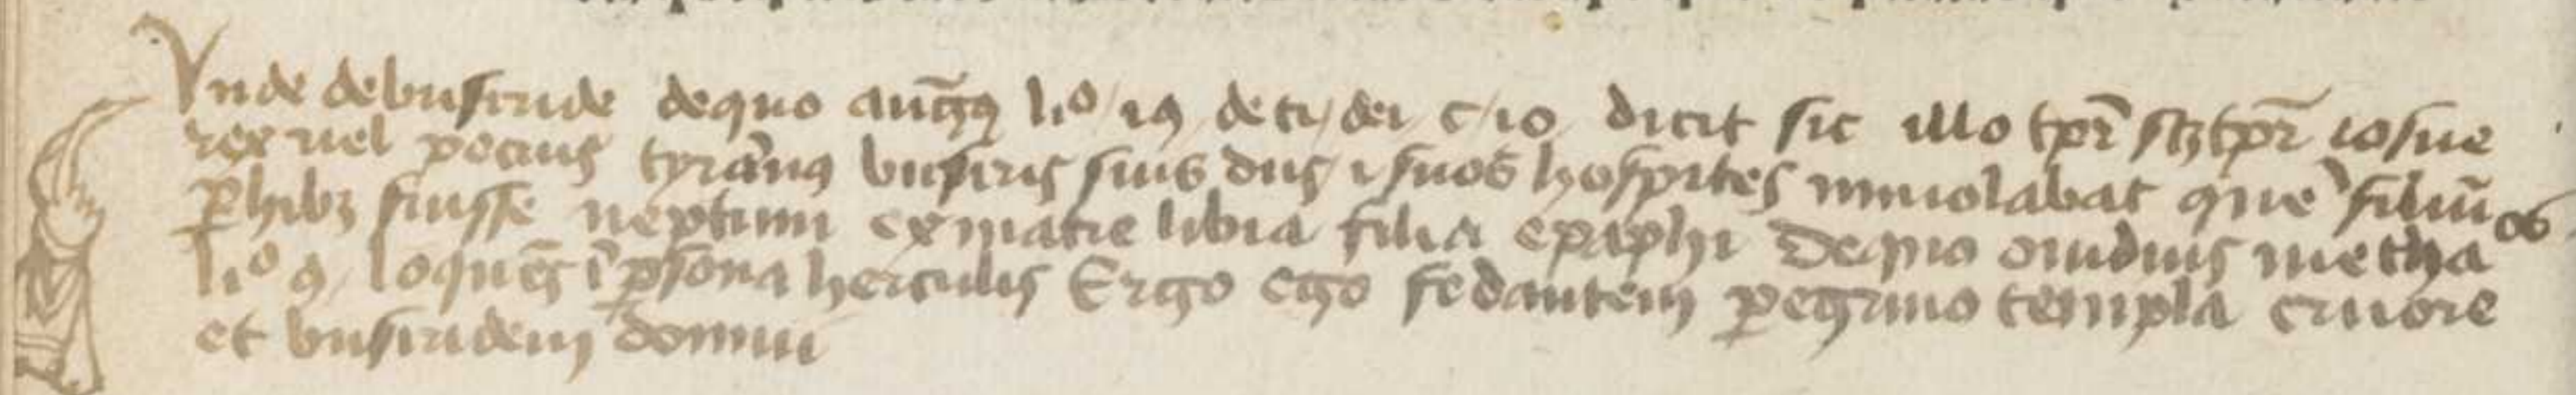 Vnde de busiride de quo aug̃9 li° 19 de ci/ dei/ c/ 10/ dicit sic illo tꝑr̃ sꝫ tꝑr̃ iosue
rex uel pocius tyrãn9 busiris suis diis / ⁊ suos hospites immolabat que filiũ
ꝑhibꝫ fuisse neptuni ex matre libia filia epaphi De quo ouidius metha os
li° 9/ loquẽs ĩ ꝑsona herculis Ergo ego fedantem ꝑegrino templa cruore
et busiridem domui